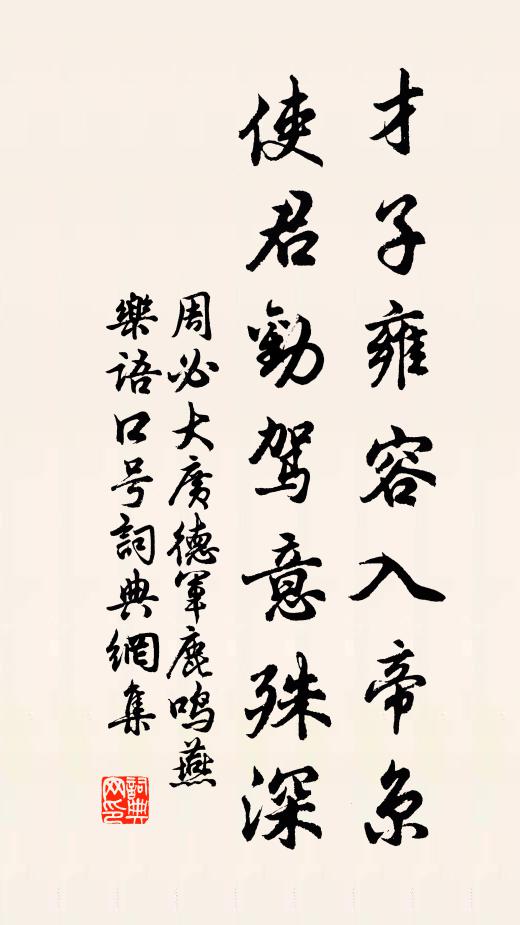 才子雍容入帝京
使君勸駕意殊深
周必大廣德軍鹿鸣燕
樂语口号詞典網集
詞典
网印